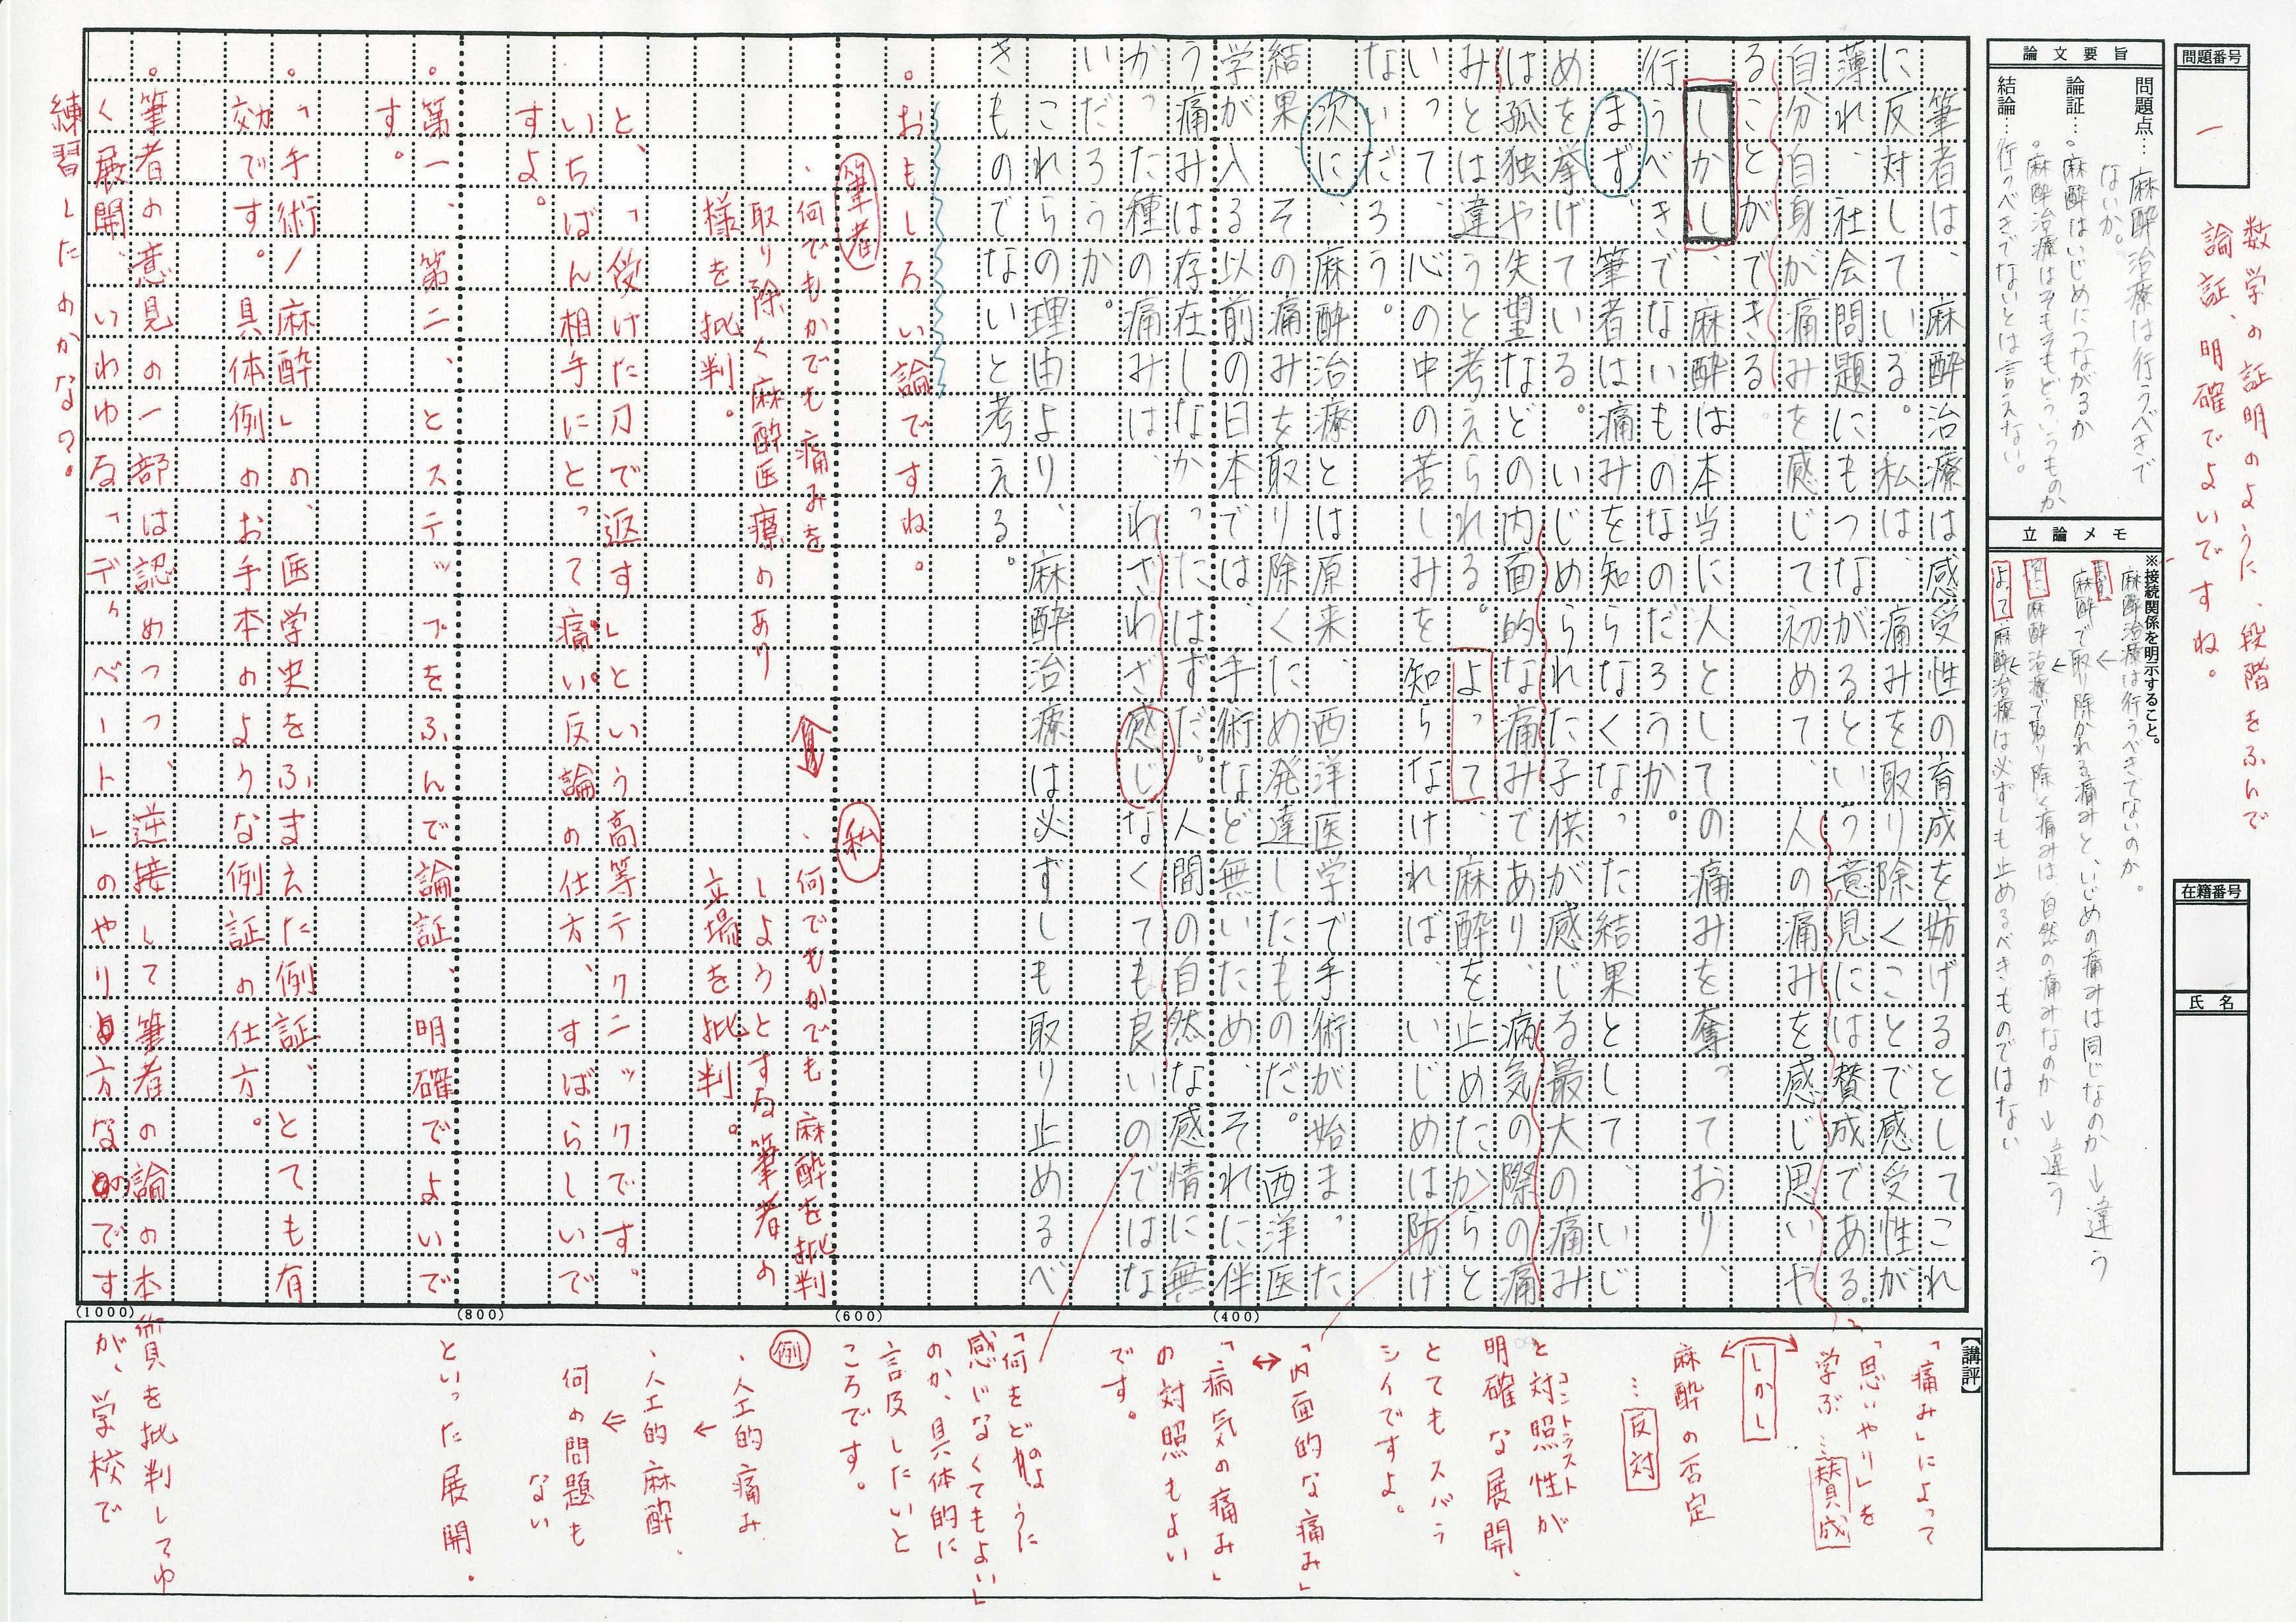 問題番号
一
数学の証明のように、段階をふんで
論証、明確でよいですね。
在籍番号
氏名
論文要旨
問題点…麻酔治療は行うべきで
ないか。
論証…。麻酔はいじめにつながるか
。麻酔治療はそもそもどういうものか
結論…行うべきでないとは言えない。
立論メモ
※接続関係を明示すること。
麻酔治療は行うべきでないのか。
↓
まず
麻酔で取り除かれる痛みと、いじめの痛みは同じなのか→違う
↓
次に
麻酔治療で取り除く痛みは自然の痛みなのか→違う
↓
よって
麻酔治療は必ずしも止めるべきものではない
筆者は、麻酔治療は感受性の育成を妨げるとしてこれ
に反対している。私は、痛みを取り除くことで感受性が
薄れ、社会問題にもつながるという意見には賛成である。
自分自身が痛みを感じて初めて、人の痛みを感じ思いや
ることができる。
しかし、麻酔は本当に人としての痛みを奪っており、
行うべきでないものなのだろうか。
まず、筆者は痛みを知らなくなった結果として、いじ
めを挙げている。いじめられた子供が感じる最大の痛み
は孤独や失望などの内面的な痛みであり、病気の際の痛
みとは違うと考えられる。よって、麻酔を止めたからと
いって、心の中の苦しみを知らなければ、いじめは防げ
ないだろう。
次に、麻酔治療とは原来、西洋医学で手術が始まった
結果、その痛みを取り除くため発達したものだ。西洋医
学が入る以前の日本では、手術など無いため、それに伴
う痛みは存在しなかったはずだ。人間の自然な感情に無
かった種の痛みは、わざわざ感じなくても良いのではな
いだろうか。
これらの理由より、麻酔治療は必ずしも取り止めるべ
きものでないと考える。
。おもしろい論ですね。
筆者
私
・何でもかでも痛みを
取り除く麻酔医療のあり
様を批判。
・何でもかでも麻酔を批判
しようとする筆者の
立場を批判。
と、「受けた刀で返す」という高等テクニックです。
いちばん相手にとって痛い反論の仕方、すばらしいで
すよ。
。第一、第二、とステップをふんで論証、明確でよいで
す。
。「手術／麻酔」の、医学史をふまえた例証、とても有
効です。具体例のお手本のような例証の仕方。
。筆者の意見の一部は認めつつ、逆接して筆者の論の本質を批判してゆ
く展開、いわゆる「ディベート」のやり方なのですが、学校で
練習したのかな？。
(400)
(600)
(800)
(1000)
【講評】
「痛み」によって
「思いやり」を
学ぶ…賛成
しかし
麻酔の否定
…反対
と対照性が
コントラスト
明確な展開、
とてもスバラ
シイですよ。
「内面的な痛み」
↔
「病気の痛み」
の対照もよい
です。
「何をどのように
感じなくてもよい」
のか、具体的に
言及したいと
ころです。
例
・人工的痛み
↓
・人工的麻酔
↓
何の問題も
ない
といった展開。